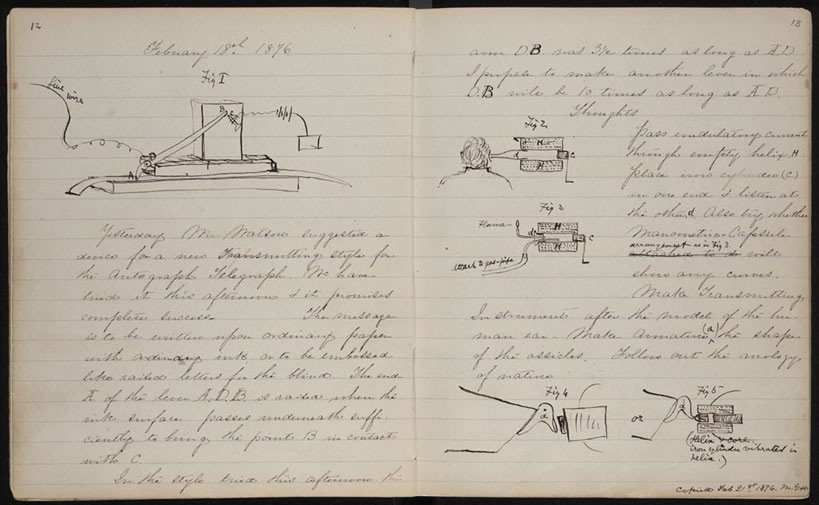 12
February 18th 1876
Fig 1
line wire
B
C
A
D
Yesterday Mr. Watson suggested a
device for a new Transmitting style for
the Autograph Telegraph. We have
tried it this afternoon & it promises
complete success. The message
is to be written upon ordinary paper
with ordinary ink or to be embossed
like raised letters for the blind. The end
A of the lever A.D.B. is raised when the
ink surface passes underneath suffi-
ciently to bring the point B in contact
with C.
In the style tried this afternoon the
13
arm DB was 3½ times as long as A.D.
I propose to make another lever in which
D.B will be 10 times as long as A.D.
Thoughts
Fig 2
H
C
H
Pass undulatory current
through empty helix H
place iron cylinder (C)
in one end & listen at
the other d. Also try whether
Manometric Capsule
arrangement as in Fig 3
attached to d will
show any curves.
Fig 3
Flame
H
d
C
H
attach to gas-pipe
Make Transmitting
Instrument after the model of the hu-
man ear. Make armature (a) the shape
of the ossicles. Follow out the analogy
of nature
Fig 4
a
or
Fig 5
a
(Helix & core.
iron cylinder vibrated in
helix.)
Copied Feb 21st 1876.